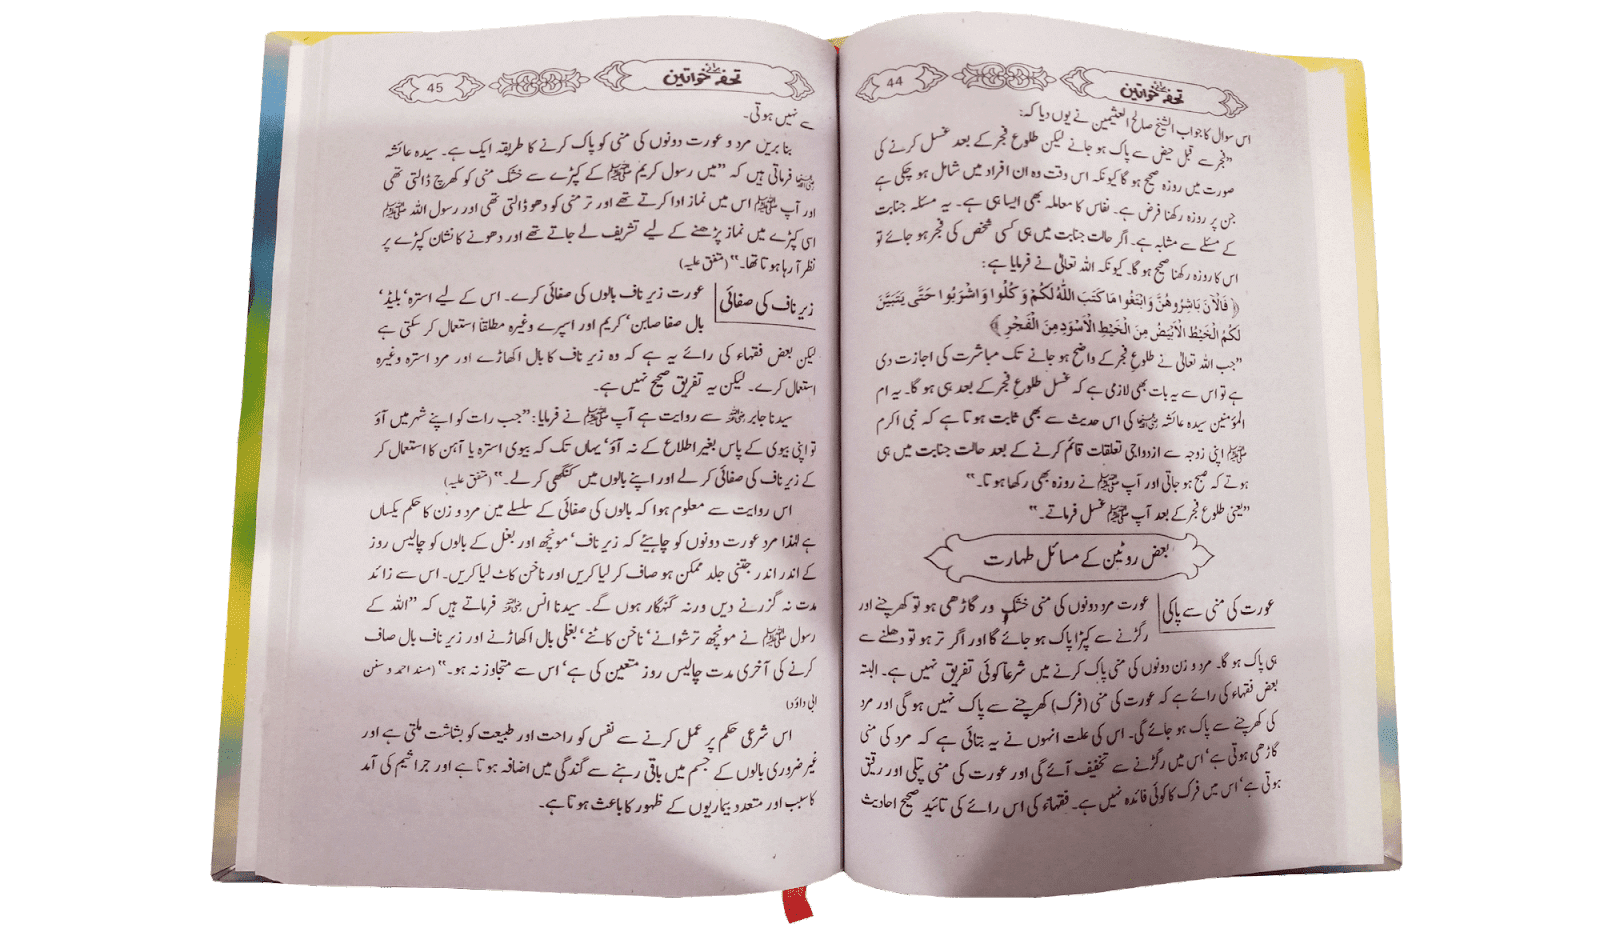 44
تحفہ برائے خواتین
اس سوال کا جواب الشیخ صالح العثیمین نے یوں دیا کہ:
”فجر سے قبل حیض سے پاک ہو جانے لیکن طلوع فجر کے بعد غسل کرنے کی
صورت میں روزہ صحیح ہو گا کیونکہ اس وقت وہ ان افراد میں شامل ہو چکی ہے
جن پر روزہ رکھنا فرض ہے۔ نفاس کا معاملہ بھی ایسا ہی ہے۔ یہ مسئلہ جنابت
کے مسئلے سے مشابہ ہے۔ اگر حالت جنابت میں ہی کسی شخص کی فجر ہو جائے تو
اس کا روزہ رکھنا صحیح ہو گا۔ کیونکہ اللہ تعالیٰ نے فرمایا ہے:
﴿ فَالْآنَ بَاشِرُوهُنَّ وَابْتَغُوا مَا كَتَبَ اللَّهُ لَكُمْ وَكُلُوا وَاشْرَبُوا حَتَّى يَتَبَيَّنَ
لَكُمُ الْخَيْطُ الْأَبْيَضُ مِنَ الْخَيْطِ الْأَسْوَدِ مِنَ الْفَجْرِ ﴾
”جب اللہ تعالیٰ نے طلوع فجر کے واضح ہو جانے تک مباشرت کی اجازت دی
ہے تو اس سے یہ بات بھی لازمی ہے کہ غسل طلوع فجر کے بعد ہی ہو گا۔ یہ ام
المؤمنین سیدہ عائشہ رضی اللہ عنہا کی اس حدیث سے بھی ثابت ہوتا ہے کہ نبی اکرم
ﷺ اپنی زوجہ سے ازدواجی تعلقات قائم کرنے کے بعد حالت جنابت میں ہی
ہوتے کہ صبح ہو جاتی اور آپ ﷺ نے روزہ بھی رکھا ہوتا۔“
”یعنی طلوع فجر کے بعد آپ ﷺ غسل فرماتے۔“
بعض روٹین کے مسائل طہارت
عورت کی منی سے پاکی
عورت مرد دونوں کی منی خشک اور گاڑھی ہو تو کھرچنے اور
رگڑنے سے کپڑا پاک ہو جائے گا اور اگر تر ہو تو دھلنے سے
ہی پاک ہو گا۔ مرد و زن دونوں کی منی پاک کرنے میں شرعاً کوئی تفریق نہیں ہے۔ البتہ
بعض فقہاء کی رائے ہے کہ عورت کی منی (فرک) کھرچنے سے پاک نہیں ہو گی اور مرد
کی کھرچنے سے پاک ہو جائے گی۔ اس کی علت انہوں نے یہ بتائی ہے کہ مرد کی منی
گاڑھی ہوتی ہے‘ اس میں رگڑنے سے تخفیف آئے گی اور عورت کی منی پتلی اور رقیق
ہوتی ہے‘ اس میں فرک کا کوئی فائدہ نہیں ہے۔ فقہاء کی اس رائے کی تائید صحیح احادیث
45
تحفہ برائے خواتین
سے نہیں ہوتی۔
بنا بریں مرد و عورت دونوں کی منی کو پاک کرنے کا طریقہ ایک ہے۔ سیدہ عائشہ
رضی اللہ عنہا فرماتی ہیں کہ ”میں رسول کریم ﷺ کے کپڑے سے خشک منی کو کھرچ ڈالتی تھی
اور آپ ﷺ اس میں نماز ادا کرتے تھے اور تر منی کو دھو ڈالتی تھی اور رسول اللہ ﷺ
اسی کپڑے میں نماز پڑھنے کے لیے تشریف لے جاتے تھے اور دھونے کا نشان کپڑے پر
نظر آ رہا ہوتا تھا۔“ (متفق علیہ)
زیر ناف کی صفائی
عورت زیر ناف بالوں کی صفائی کرے۔ اس کے لیے استرہ‘ بلیڈ‘
بال صفا صابن‘ کریم اور اسپرے وغیرہ مطلقاً استعمال کر سکتی ہے
لیکن بعض فقہاء کی رائے یہ ہے کہ وہ زیر ناف کا بال اکھاڑے اور مرد استرہ وغیرہ
استعمال کرے۔ لیکن یہ تفریق صحیح نہیں ہے۔
سیدنا جابر رضی اللہ عنہ سے روایت ہے آپ ﷺ نے فرمایا: ”جب رات کو اپنے شہر میں آؤ
تو اپنی بیوی کے پاس بغیر اطلاع کے نہ آؤ‘ یہاں تک کہ بیوی استرہ یا آہن کا استعمال کر
کے زیر ناف کی صفائی کر لے اور اپنے بالوں میں کنگھی کر لے۔“ (متفق علیہ)
اس روایت سے معلوم ہوا کہ بالوں کی صفائی کے سلسلے میں مرد و زن کا حکم یکساں
ہے لہٰذا مرد عورت دونوں کو چاہیئے کہ زیر ناف‘ مونچھ اور بغل کے بالوں کو چالیس روز
کے اندر اندر جتنی جلد ممکن ہو صاف کر لیا کریں اور ناخن کاٹ لیا کریں۔ اس سے زائد
مدت نہ گزرنے دیں ورنہ گنہگار ہوں گے۔ سیدنا انس رضی اللہ عنہ فرماتے ہیں کہ ”اللہ کے
رسول ﷺ نے مونچھ ترشوانے‘ ناخن کاٹنے‘ بغلی بال اکھاڑنے اور زیر ناف بال صاف
کرنے کی آخری مدت چالیس روز متعین کی ہے‘ اس سے متجاوز نہ ہو۔“ (مسند احمد و سنن
ابی داؤد)
اس شرعی حکم پر عمل کرنے سے نفس کو راحت اور طبیعت کو بشاشت ملتی ہے اور
غیر ضروری بالوں کے جسم میں باقی رہنے سے گندگی میں اضافہ ہوتا ہے اور جراثیم کی آمد
کا سبب اور متعدد بیماریوں کے ظہور کا باعث ہوتا ہے۔